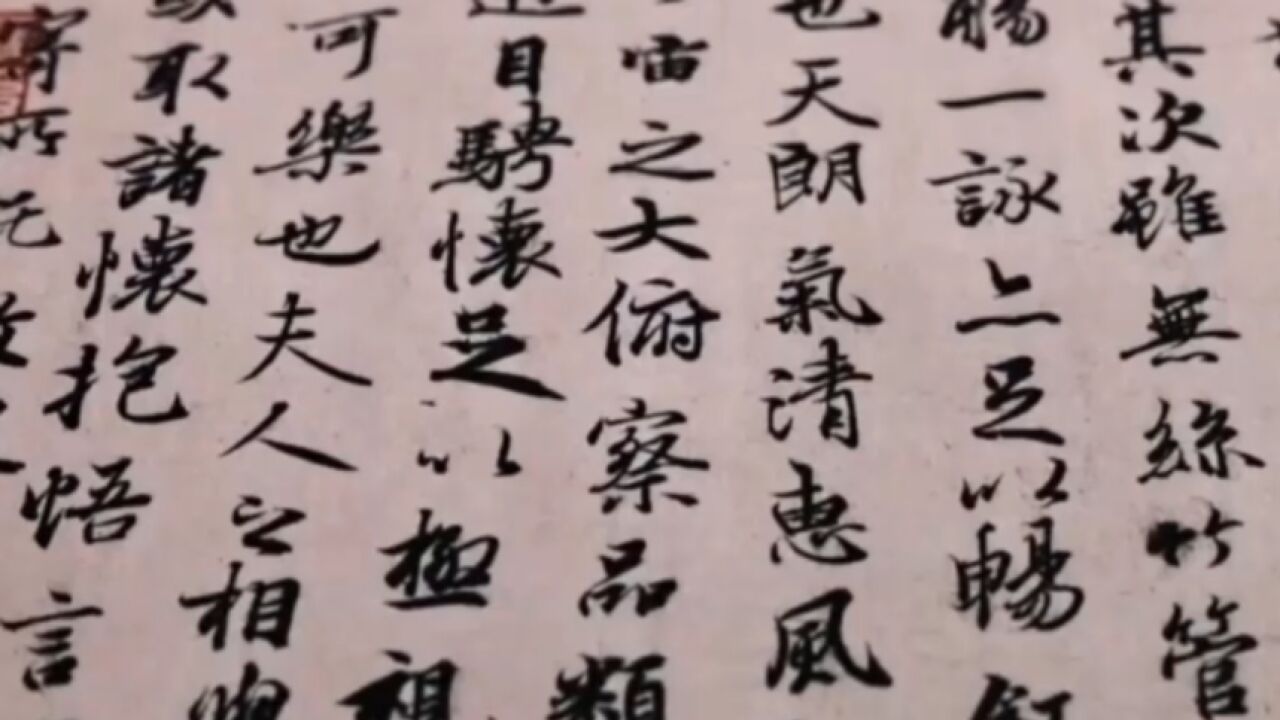 其次雖無絲竹管
觴一詠亦足以暢叙
也天朗氣清惠風
宙之大俯察品類
遊目騁懷足以極視
可樂也夫人之相與
取諸懷抱悟言
寄所託